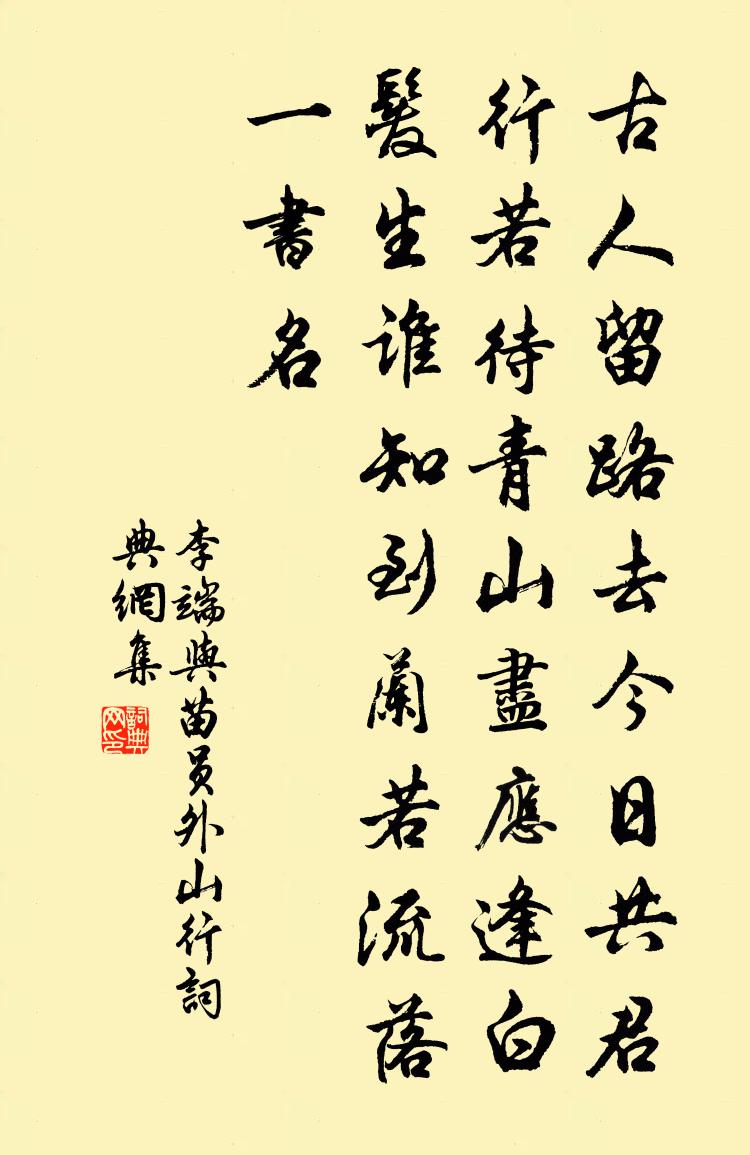 古人留路去今日共君
行若待青山盡應逢白
髮生誰知到蘭若流落
一書名
李端與苗员外山行詞
典網集
詞典
网印